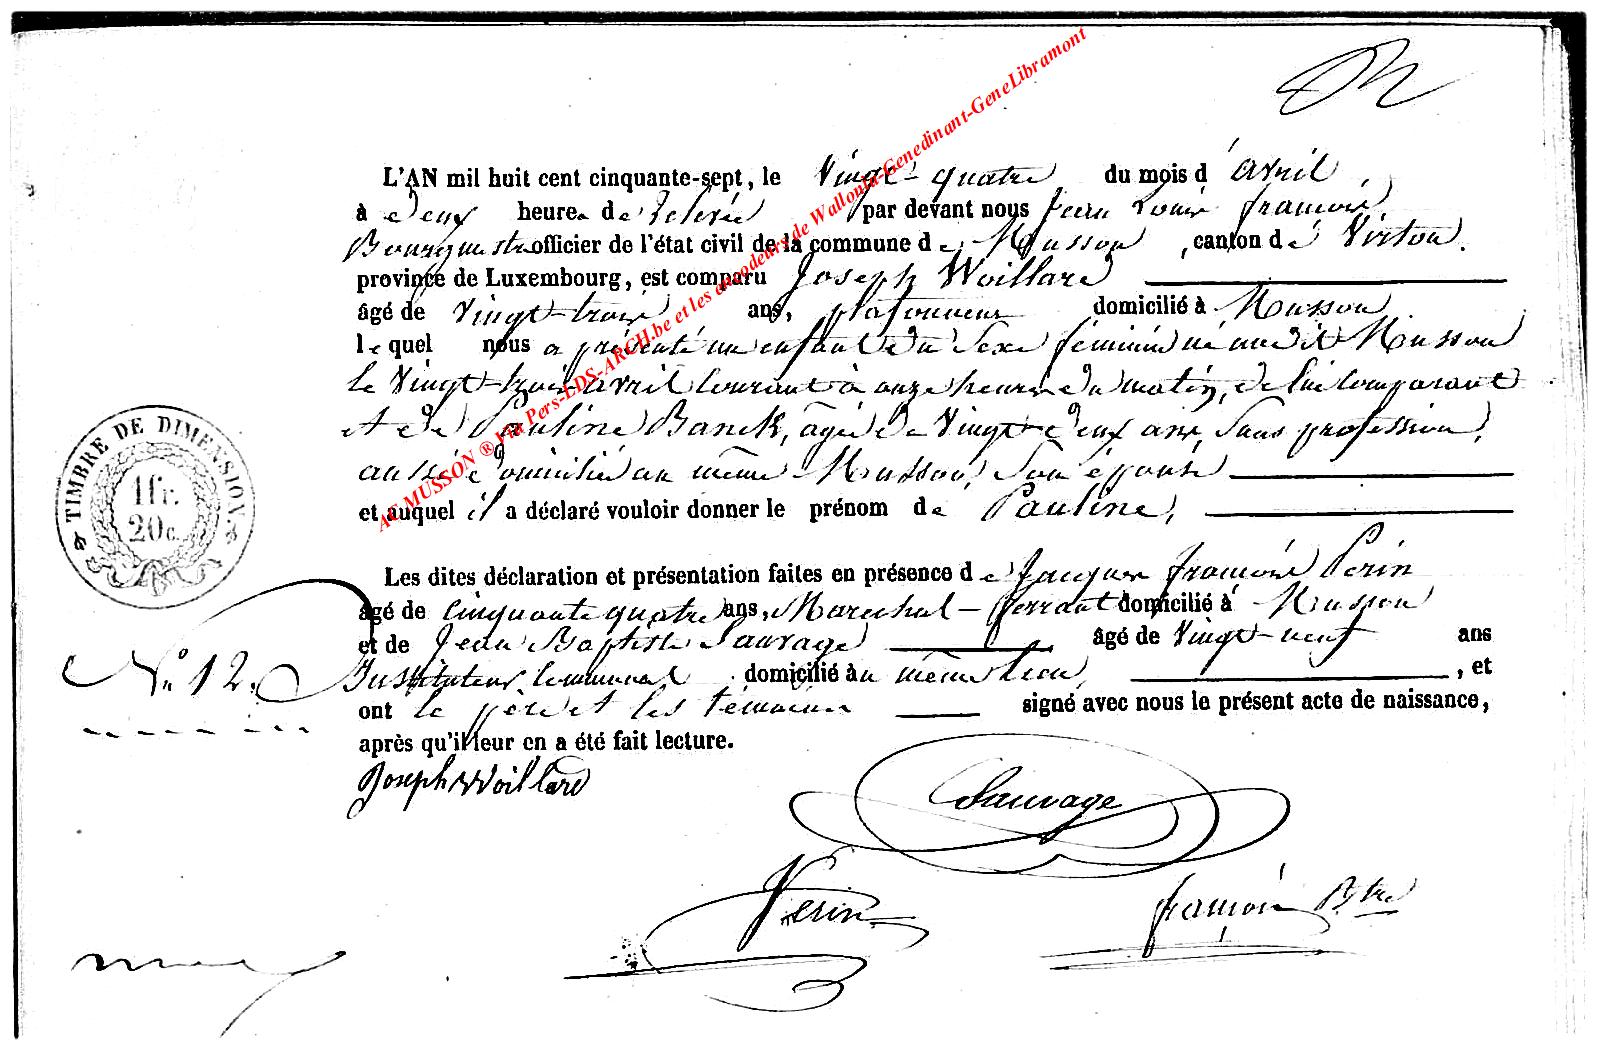 L'AN mil huit cent cinquante-sept, le Vingt-quatre du mois d'avril,
à deux heures de relevée par devant nous Jean Louis François,
Bourgmestre officier de l'état civil de la commune de Musson, canton de Virton,
province de Luxembourg, est comparu Joseph Woillard
âgé de vingt-trois ans, plafonneur domicilié à Musson
lequel nous a présenté un enfant du sexe féminin né audit Musson
le Vingt-trois avril courant à onze heures du matin, de lui comparant
et de Pauline Banck, âgée de Vingt-deux ans, sans profession,
aussi domiciliée au même Musson, son épouse
et auquel il a déclaré vouloir donner le prénom de Pauline,
Les dites déclaration et présentation faites en présence de Jacques François Perin
âgé de cinquante quatre ans, Maréchal-ferrant domicilié à Musson
et de Jean Baptiste Sauvage âgé de Vingt-neuf ans
Instituteur communal domicilié au même lieu, , et
ont le père et les témoins signé avec nous le présent acte de naissance,
après qu'il leur en a été fait lecture.
TIMBRE DE DIMENSION.
1 fr.
20 c.
N° 12.
Joseph Woillard
Sauvage
Perin
françois Btre
AE MUSSON ® Via Pers-LDS-ARCH.be et les encodeurs de Wallonia-Genedinant-GeneLibramont